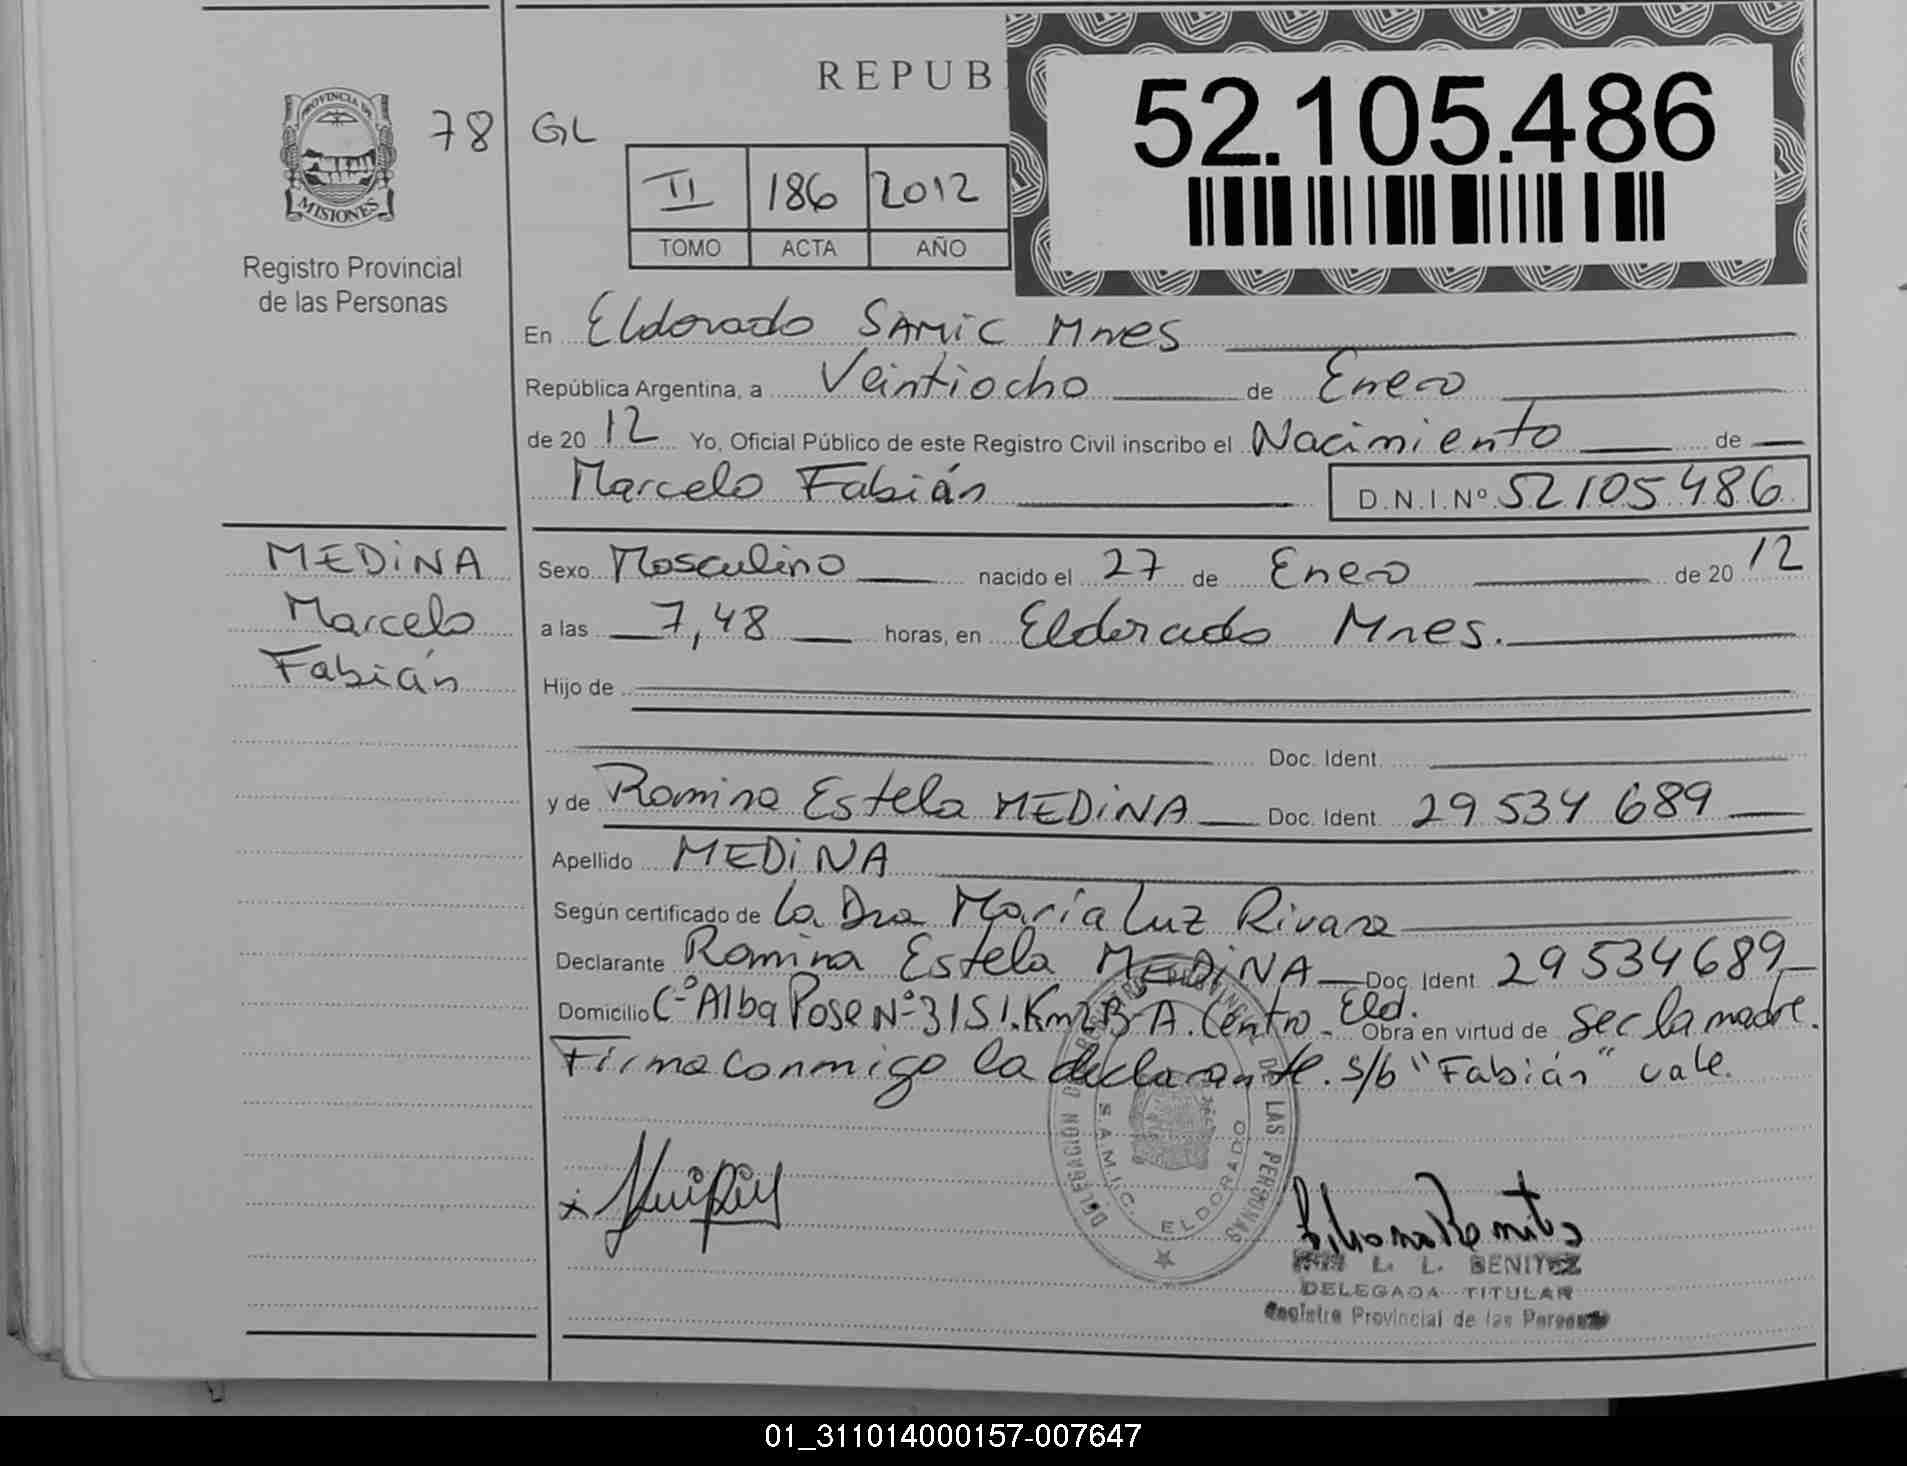 REPUB
52.105.486
PROVINCIA DE
MISIONES
78 GL
II 186 2012
TOMO ACTA AÑO
Registro Provincial
de las Personas
En Eldorado SAMIC Mnes
República Argentina, a Veintiocho de Enero
de 20 12 Yo, Oficial Público de este Registro Civil inscribo el Nacimiento de
Marcelo Fabián D.N.I.Nº 52105486
MEDINA
Marcelo
Fabián
Sexo Masculino nacido el 27 de Enero de 20 12
a las 7,48 horas, en Eldorado Mnes.
Hijo de
Doc. Ident.
y de Romina Estela MEDINA Doc. Ident. 29 534 689
Apellido MEDINA
Según certificado de La Dra María Luz Rivara
Declarante Romina Estela MEDINA Doc. Ident. 29 534689
Domicilio C-º Alba Pose Nº 3151. Km2 Bº A. Centro - Eld. Obra en virtud de ser la madre.
Firma conmigo la declarante. s/b "Fabián" vale.
DELEGACION DE LAS PERSONAS
S.A.M.I.C. ELDORADO
x
L. L. BENITEZ
DELEGADA TITULAR
Registro Provincial de las Personas
01_311014000157-007647